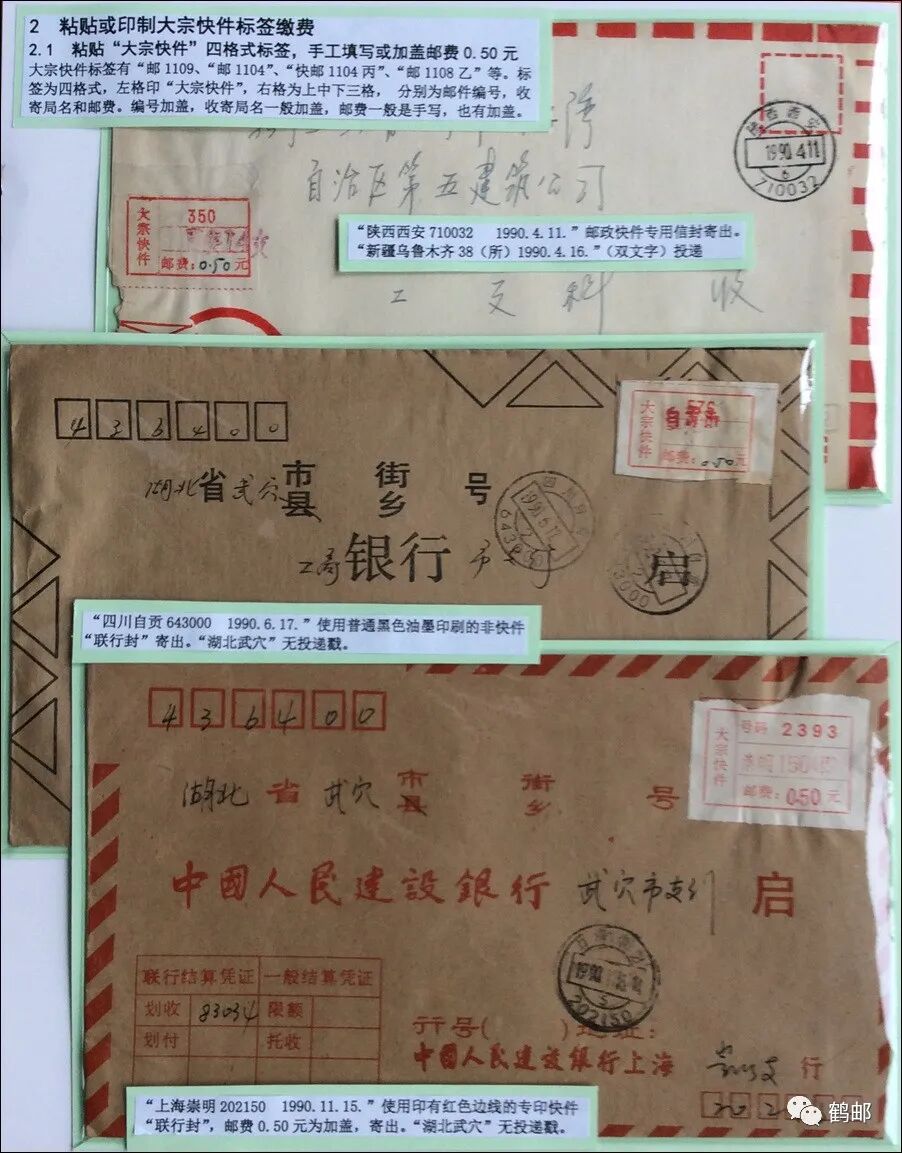 2 粘贴或印制大宗快件标签缴费
2.1 粘贴“大宗快件”四格式标签，手工填写或加盖邮费 0.50 元
大宗快件标签有“邮1109、“邮1104”、“快邮1104丙”、“邮1108乙”等。标
签为四格式，左格印“大宗快件”，右格为上中下三格，分别为邮件编号，收
寄局名和邮费。编号加盖，收寄局名一般加盖，邮费一般是手写，也有加盖。
陕西西安
1990.4.11
6
710032
自治区第五建筑公司
大宗快件
350
邮费：0.50元
“陕西西安 710032 1990.4.11.”邮政快件专用信封寄出。
“新疆乌鲁木齐38（所）1990.4.16.”（双文字）投递
工 科 收
大宗快件
576
邮费：0.50元
4 3 6 4 0 0
湖北省武穴市县 街乡 号
1990.6.17
工商银行 启
“四川自贡 643000 1990.6.17.”使用普通黑色油墨印刷的非快件
“联行封”寄出。“湖北武穴”无投递戳。
4 3 6 4 0 0
大宗快件
号码 2393
崇明
邮费：050元
湖北省武穴市县 街乡 号
中國人民建設銀行 武穴市支行 启
202150
联行结算凭证 一般结算凭证
划收 83034 限额
划付 托收
行号( )地址：
中國人民建設銀行上海 行
“上海崇明 202150 1990.11.15.”使用印有红色边线的专印快件
“联行封”，邮费 0.50 元为加盖，寄出。“湖北武穴”无投递戳。
鹤邮